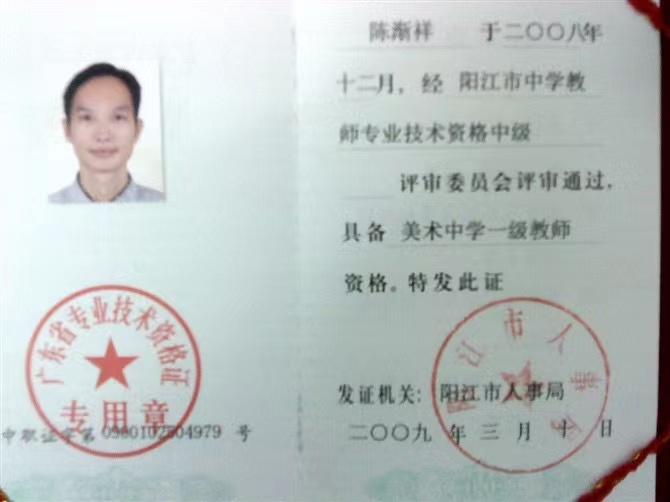 陈渐祥 于二〇〇八年
十二月，经 阳江市中学教
师专业技术资格中级
评审委员会评审通过，
具备 美术中学一级教师
资格。特发此证
发证机关：阳江市人事局
二〇〇九 年 三 月 十 日
广东省专业技术资格证
专用章
中职证字第 号
阳江市人事局